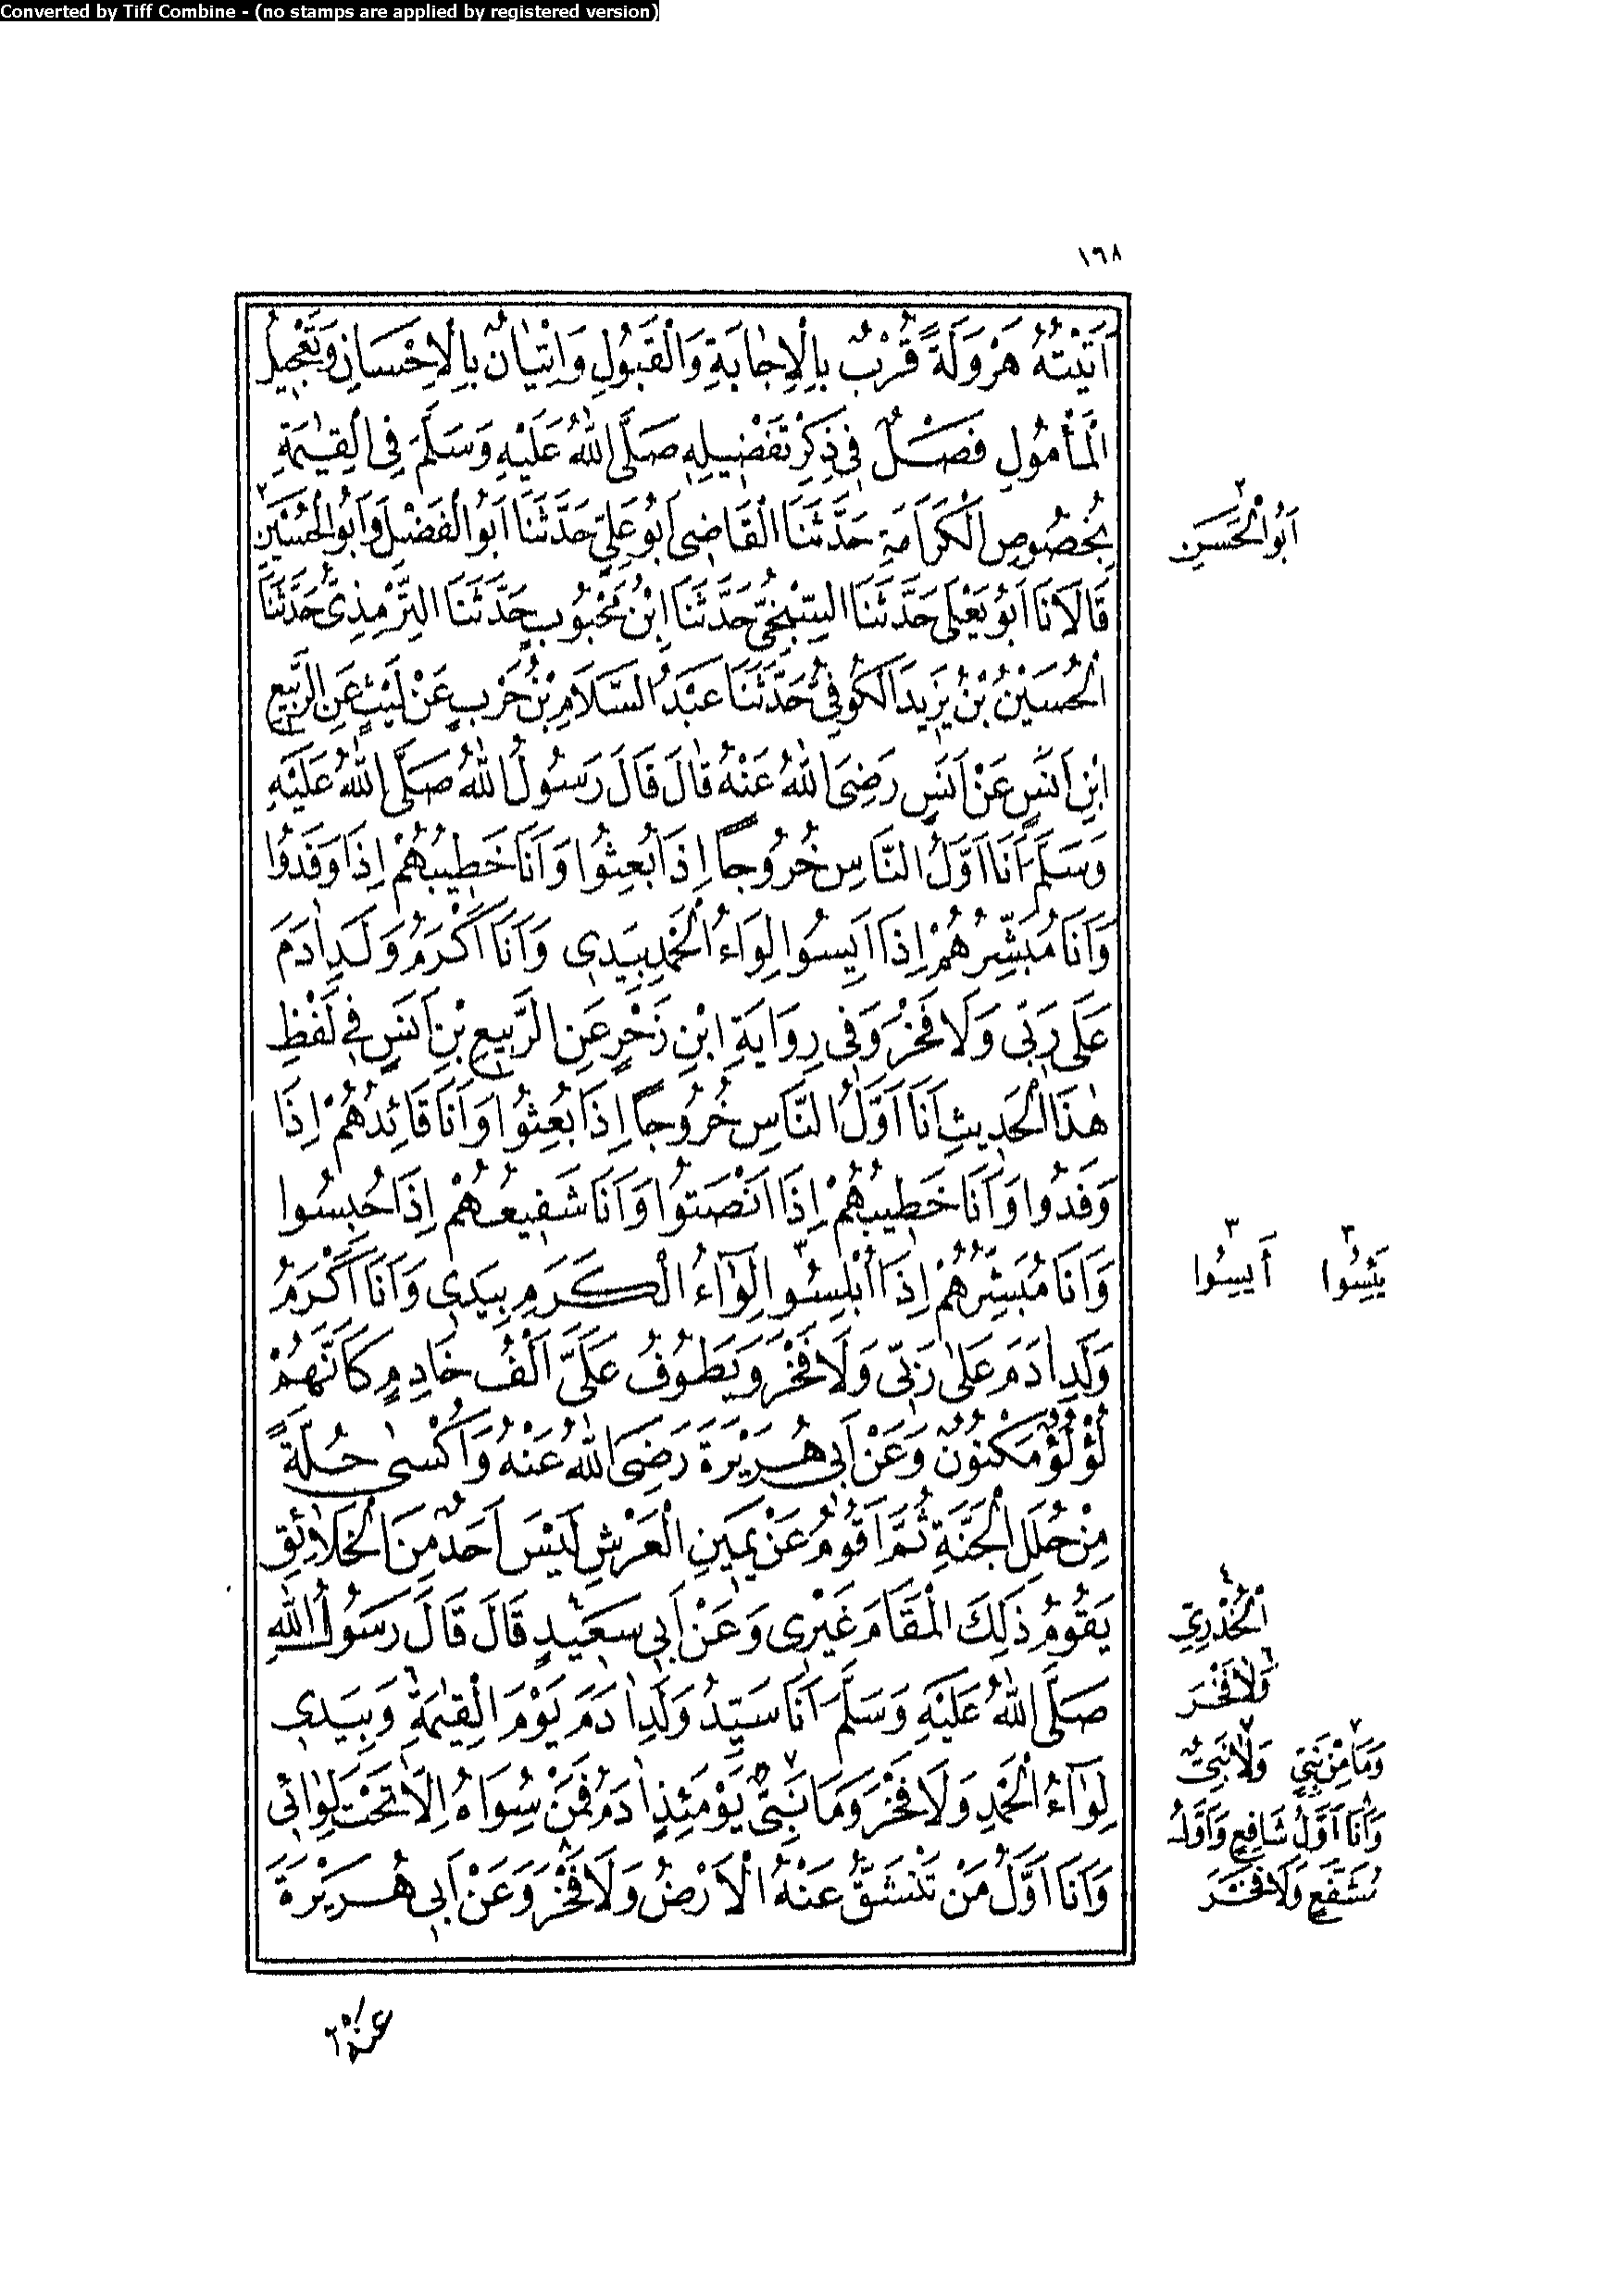 Converted by Tiff Combine - (no stamps are applied by registered version)
١٦٨
اَتَيْتُهُ هَرْوَلَةً قُرْبٌ بِالْاِجٰابَةِ وَالْقَبُولِ وَاِتْيٰانٌ بِالْاِحْسَانِ وَتَعْجِيلُ
الْمَأْمُولِ فَصْلٌ فِى ذِكْرِ تَفْضِيلِهِ صَلَّى اللهُ عَلَيْهِ وَسَلَّمَ فِى الْقِيٰمَةِ
بِخُصُوصِ الْكَرَامَةِ حَدَّثَنَا الْقَاضِى اَبُو عَلِيٍّ حَدَّثَنَا اَبُو الْفَضْلِ وَاَبُو الْحُسَيْنِ ٢
قَالَا نَا اَبُو يَعْلَى حَدَّثَنَا السِّنْجِىُّ حَدَّثَنَا ابْنُ مَحْبُوبٍ حَدَّثَنَا التِّرْمِذِىُّ حَدَّثَنَا
الْحُسَيْنُ بْنُ يَزِيدَ الْكُوفِىُّ حَدَّثَنَا عَبْدُ السَّلَامِ بْنُ حَرْبٍ عَنْ لَيْثٍ عَنِ الرَّبِيعِ
ابْنِ اَنَسٍ عَنْ اَنَسٍ رَضِىَ اللهُ عَنْهُ قٰالَ قَالَ رَسُولُ اللهِ صَلَّى اللهُ عَلَيْهِ
وَسَلَّمَ اَنَا اَوَّلُ النَّاسِ خُرُوجاً اِذَا بُعِثُوا وَاَنَا خَطِيبُهُمْ اِذَا وَفَدُوا
وَاَنَا مُبَشِّرُهُمْ اِذَا اَيِسُوا لِوَاءُ الْحَمْدِ بِيَدِى وَاَنَا اَكْرَمُ وَلَدِ اٰدَمَ
عَلَى رَبِّى وَلَا فَخْرَ وَفِى رِوَايَةِ ابْنِ زَحْرٍ عَنِ الرَّبِيعِ بْنِ اَنَسٍ فِى لَفْظِ
هٰذَا الْحَدِيثِ اَنَا اَوَّلُ النَّاسِ خُرُوجاً اِذَا بُعِثُوا وَاَنَا قَائِدُهُمْ اِذَا
وَفَدُوا وَاَنَا خَطِيبُهُمْ اِذَا اَنْصَتُوا وَاَنَا شَفِيعُهُمْ اِذَا حُبِسُوا
وَاَنَا مُبَشِّرُهُمْ اِذَا اُبْلِسُوا ٣ لِوٰاءُ الْكَرَمِ بِيَدِى وَاَنَا اَكْرَمُ
وَلَدِ اٰدَمَ عَلَى رَبِّى وَلَا فَخْرَ وَيَطُوفُ عَلَىَّ اَلْفُ خَادِمٍ كَاَنَّهُمْ
لُؤْلُؤٌ مَكْنُونٌ وَعَنْ اَبِى هُرَيْرَةَ رَضِىَ اللهُ عَنْهُ وَاُكْسٰى حُلَّةً
مِنْ حُلَلِ الْجَنَّةِ ثُمَّ اَقُومُ عَنْ يَمِينِ الْعَرْشِ لَيْسَ اَحَدٌ مِنَ الْخَلَائِقِ
يَقُومُ ذٰلِكَ الْمَقَامَ غَيْرِى وَعَنْ اَبِى سَعِيدٍ ٤ قَالَ قَالَ رَسُولُ اللهِ
صَلَّى اللهُ عَلَيْهِ وَسَلَّمَ اَنَا سَيِّدُ وَلَدِ اٰدَمَ يَوْمَ الْقِيٰمَةِ ٦ وَبِيَدِى
لِوٰاءُ الْحَمْدِ وَلَا فَخْرَ وَمَا نَبِىٌّ ٧ يَوْمَئِذٍ اٰدَمُ فَمَنْ سِوَاهُ اِلَّا تَحْتَ لِوٰائِى
وَاَنَا اَوَّلُ مَنْ تَنْشَقُّ عَنْهُ الْاَرْضُ وَلَا فَخْرَ ٨ وَعَنْ اَبِى هُرَيْرَةَ
٢ اَبُو الْحَسَنِ
٣ يَئِسُوا ٣ أَيِسُوا
٤ الْخُدْرِىِّ
٦ وَلَا فَخْرَ
٧ وَمَا مِنْ نَبِىٍّ ٧ وَلَا نَبِىٌّ
٨ وَاَنَا اَوَّلُ شَافِعٍ وَاَوَّلُ
مُشَفَّعٍ وَلَا فَخْرَ